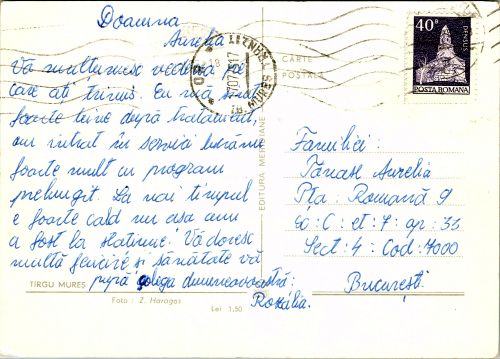 Doamna
Aurelia
Vă mulțumesc vederea pe
care ați trimis. Eu mă simt
foarte bine după tratament,
am intrat în serviciu lucrăm
foarte mult cu program
prelungit. La noi timpul
e foarte cald nu așa cum
a fost la slatine! Vă doresc
multă fericire și sănătate vă
pupă colega dumneavoastră:
Rozalia.
TÎRGU MUREȘ
Foto : Z. Haragos
Lei 1,50
EDITURA MERIDIANE
CARTE
POSTALĂ
TG. MUREȘ
40B
DENSUS
POSTA ROMANA
Familiei:
Tănase Aurelia
Pța: Romană 9
Sc: C: et: 7: ap: 35
Sect: 4: Cod: 7000
București